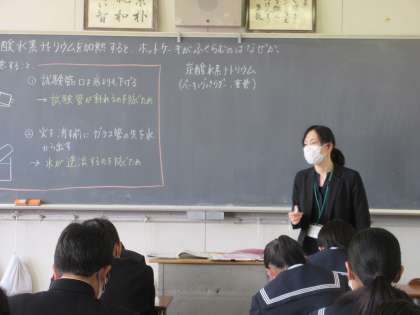 酸水素ナトリウムを加熱すると、ホットケーキがふくらむのはなぜか。
意すること
① 試験管口を底より下げる
→ 試験管が割れるのを防ぐため
② 火を消す前にガラス管の先を水から出す
→ 水が逆流するのを防ぐため
炭酸水素ナトリウム
(ベーキングパウダー、重曹)